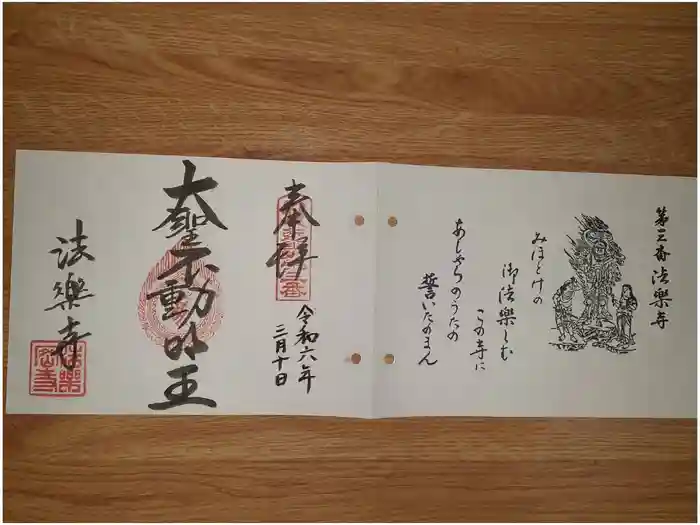 第三番法樂寺
みほとけの
御法樂しむ
この寺に
あしゃらのうたの
誓いたのまん
奉拝
令和六年
三月十日
大聖不動明王
法樂寺